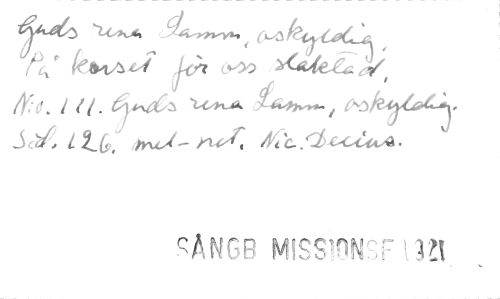 Guds rena Lamm, oskyldig,
På korset för oss slaktad,
N:o. 111. Guds rena Lamm, oskyldig.
Sid. 126. mel-not. Nic. Decius.
SÅNGB MISSIONSF 1921